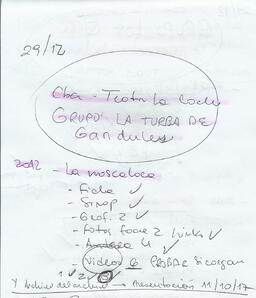 29/12
Cba - Teatro La Cochera
GRUPO LA TURBA DE
Gandules
2012 - La moscoloca
- Ficha ✓
- Sinop ✓
- Graf. 2 ✓
- Fotos face 2 links ✓
- 4 ✓
- Videos 6 PROBAR si cargan
1 ✓ 2
Y Archivo del archivo → Presentación 11/10/17